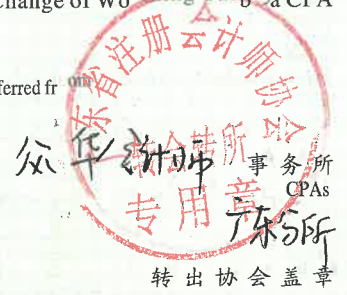 Change of Wo
b a CPA
ferred from
东省注册会计师协会
转会转所
专用章
众华会计师 事务所
CPAs
广东分所
转出协会盖章